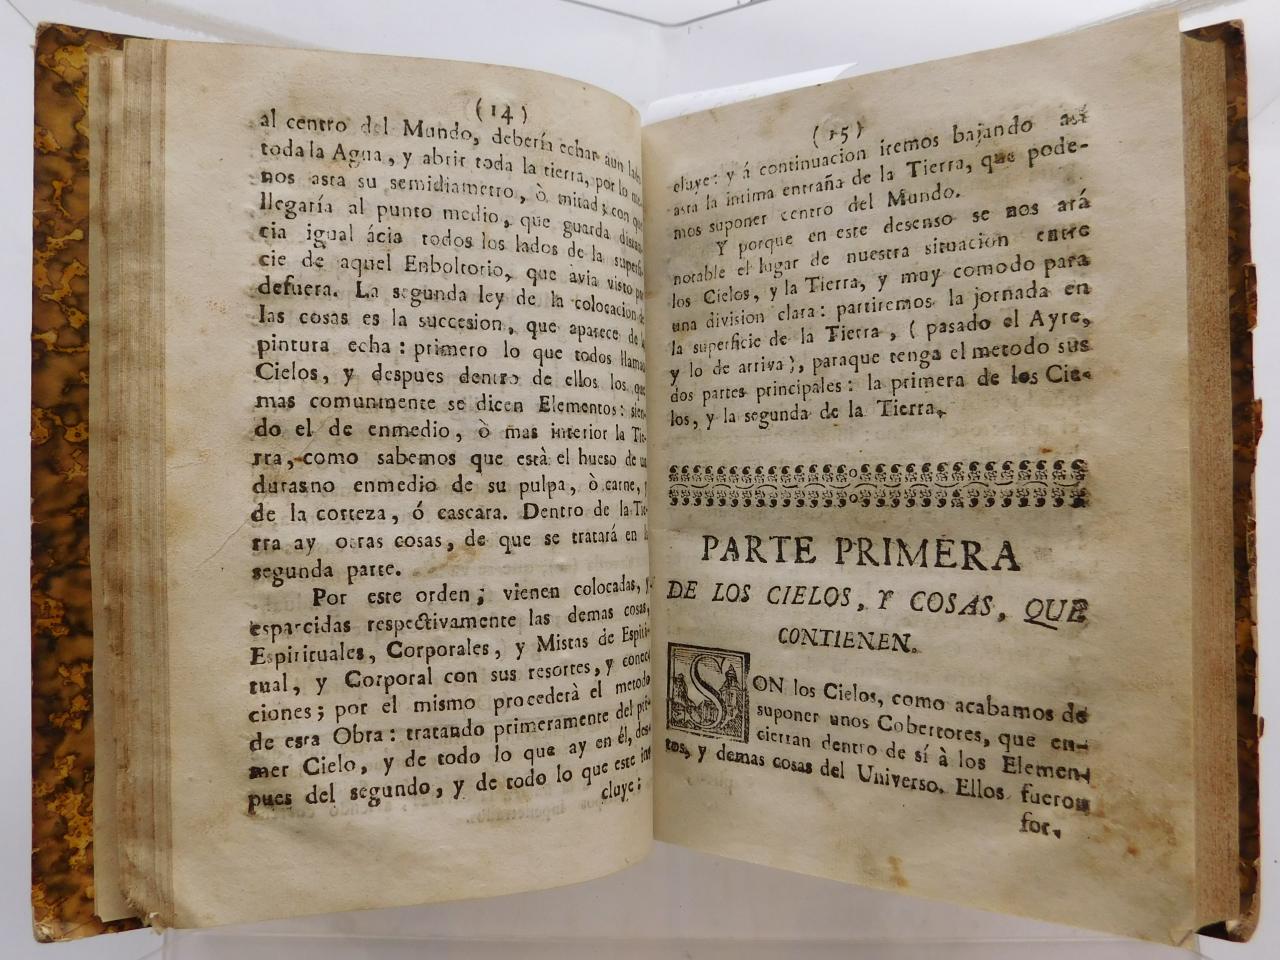 (14)
al centro del Mundo, debería echar aun lado
toda la Agua, y abrir toda la tierra, por lo me-
nos asta su semidiametro, ò mitad; con que
llegaría al punto medio, que guarda distan-
cia igual ácia todos los lados de la superfi-
cie de aquel Enboltorio, que avia visto por
defuera. La segunda ley de la colocacion de
las cosas es la succesion, que aparece de la
pintura echa: primero lo que todos llaman
Cielos, y despues dentro de ellos los que
mas comunmente se dicen Elementos: sien-
do el de enmedio, ò mas interior la Tie-
rra, como sabemos que està el hueso de un
durasno enmedio de su pulpa, ò carne, y
de la corteza, ó cascara. Dentro de la Tie-
rra ay otras cosas, de que se tratará en la
segunda parte.
Por este orden; vienen colocadas, y
esparcidas respectivamente las demas cosas,
Espirituales, Corporales, y Mistas de Espiri-
tual, y Corporal con sus resortes, y conec-
ciones; por el mismo procederà el metodo
de esta Obra: tratando primeramente del pri-
mer Cielo, y de todo lo que ay en él, des-
pues del segundo, y de todo lo que este in-
cluye:
(15)
cluye: y á continuacion iremos bajando asi
asta la intima entraña de la Tierra, que pode-
mos suponer centro del Mundo.
Y porque en este desenso se nos ará
notable el lugar de nuestra situacion entre
los Cielos, y la Tierra, y muy comodo para
una division clara: partiremos la jornada en
la superficie de la Tierra, (pasado el Ayre,
y lo de arriva), paraque tenga el metodo sus
dos partes principales: la primera de los Cie-
los, y la segunda de la Tierra.
PARTE PRIMERA
DE LOS CIELOS, Y COSAS, QUE
CONTIENEN.
SON los Cielos, como acabamos de
suponer unos Cobertores, que en-
cierran dentro de sí à los Elemen-
tos, y demas cosas del Universo. Ellos fueron
for-